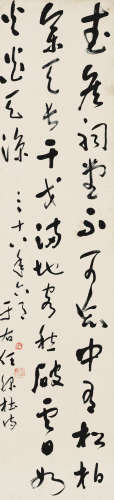 武侯祠堂不可忘中有松柏
參天長干戈滿地客愁破雲日如
火炎天涼 三十八年六月 于右任 杜詩